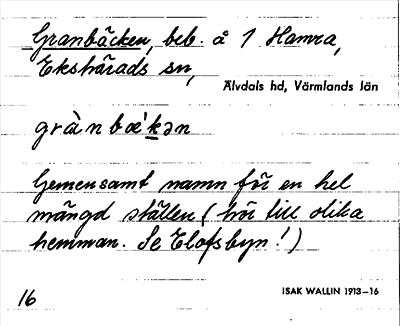 Granbäcken, beb. å 1 Hamra,
Ekshärads sn,
Älvdals hd, Värmlands län
gràn bæ'kən
Gemensamt namn för en hel
mängd ställen (hör till olika
hemman. Se Elofsbyn!)
ISAK WALLIN 1913–16
16